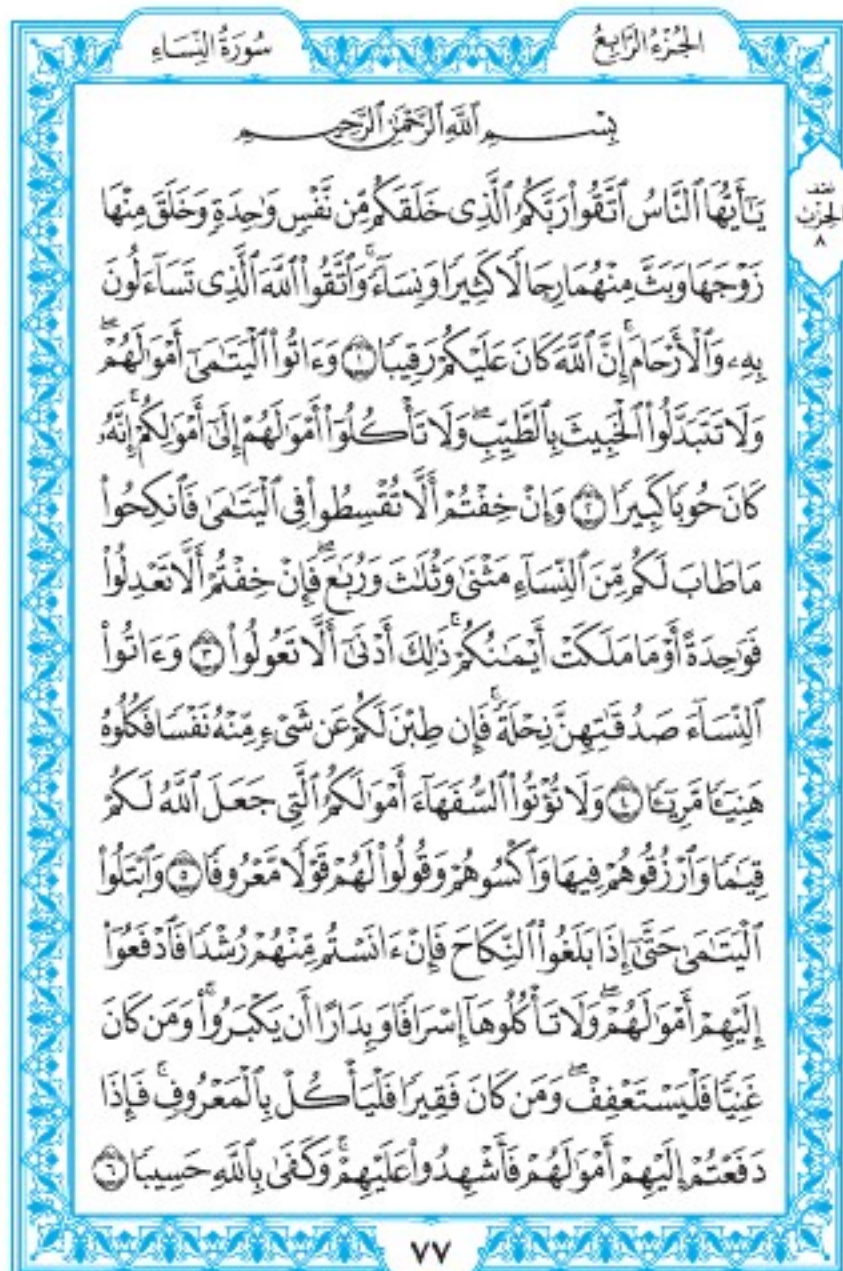 الجُزْءُ الرَّابِعُ
سُورَةُ النِّسَاءِ
بِسْمِ ٱللَّهِ ٱلرَّحْمَٰنِ ٱلرَّحِيمِ
يَٰٓأَيُّهَا ٱلنَّاسُ ٱتَّقُوا۟ رَبَّكُمُ ٱلَّذِى خَلَقَكُم مِّن نَّفْسٍ وَٰحِدَةٍ وَخَلَقَ مِنْهَا
نصف
الحزب
٨
زَوْجَهَا وَبَثَّ مِنْهُمَا رِجَالًا كَثِيرًا وَنِسَآءً ۚ وَٱتَّقُوا۟ ٱللَّهَ ٱلَّذِى تَسَآءَلُونَ
بِهِۦ وَٱلْأَرْحَامَ ۚ إِنَّ ٱللَّهَ كَانَ عَلَيْكُمْ رَقِيبًا ١ وَءَاتُوا۟ ٱلْيَتَٰمَىٰٓ أَمْوَٰلَهُمْ ۖ
وَلَا تَتَبَدَّلُوا۟ ٱلْخَبِيثَ بِٱلطَّيِّبِ ۖ وَلَا تَأْكُلُوٓا۟ أَمْوَٰلَهُمْ إِلَىٰٓ أَمْوَٰلِكُمْ ۚ إِنَّهُۥ
كَانَ حُوبًا كَبِيرًا ٢ وَإِنْ خِفْتُمْ أَلَّا تُقْسِطُوا۟ فِى ٱلْيَتَٰمَىٰ فَٱنكِحُوا۟
مَا طَابَ لَكُم مِّنَ ٱلنِّسَآءِ مَثْنَىٰ وَثُلَٰثَ وَرُبَٰعَ ۖ فَإِنْ خِفْتُمْ أَلَّا تَعْدِلُوا۟
فَوَٰحِدَةً أَوْ مَا مَلَكَتْ أَيْمَٰنُكُمْ ۚ ذَٰلِكَ أَدْنَىٰٓ أَلَّا تَعُولُوا۟ ٣ وَءَاتُوا۟
ٱلنِّسَآءَ صَدُقَٰتِهِنَّ نِحْلَةً ۚ فَإِن طِبْنَ لَكُمْ عَن شَىْءٍ مِّنْهُ نَفْسًا فَكُلُوهُ
هَنِيٓـًٔا مَّرِيٓـًٔا ٤ وَلَا تُؤْتُوا۟ ٱلسُّفَهَآءَ أَمْوَٰلَكُمُ ٱلَّتِى جَعَلَ ٱللَّهُ لَكُمْ
قِيَٰمًا وَٱرْزُقُوهُمْ فِيهَا وَٱكْسُوهُمْ وَقُولُوا۟ لَهُمْ قَوْلًا مَّعْرُوفًا ٥ وَٱبْتَلُوا۟
ٱلْيَتَٰمَىٰ حَتَّىٰٓ إِذَا بَلَغُوا۟ ٱلنِّكَاحَ فَإِنْ ءَانَسْتُم مِّنْهُمْ رُشْدًا فَٱدْفَعُوٓا۟
إِلَيْهِمْ أَمْوَٰلَهُمْ ۖ وَلَا تَأْكُلُوهَآ إِسْرَافًا وَبِدَارًا أَن يَكْبَرُوا۟ ۚ وَمَن كَانَ
غَنِيًّا فَلْيَسْتَعْفِفْ ۖ وَمَن كَانَ فَقِيرًا فَلْيَأْكُلْ بِٱلْمَعْرُوفِ ۚ فَإِذَا
دَفَعْتُمْ إِلَيْهِمْ أَمْوَٰلَهُمْ فَأَشْهِدُوا۟ عَلَيْهِمْ ۚ وَكَفَىٰ بِٱللَّهِ حَسِيبًا ٦
٧٧